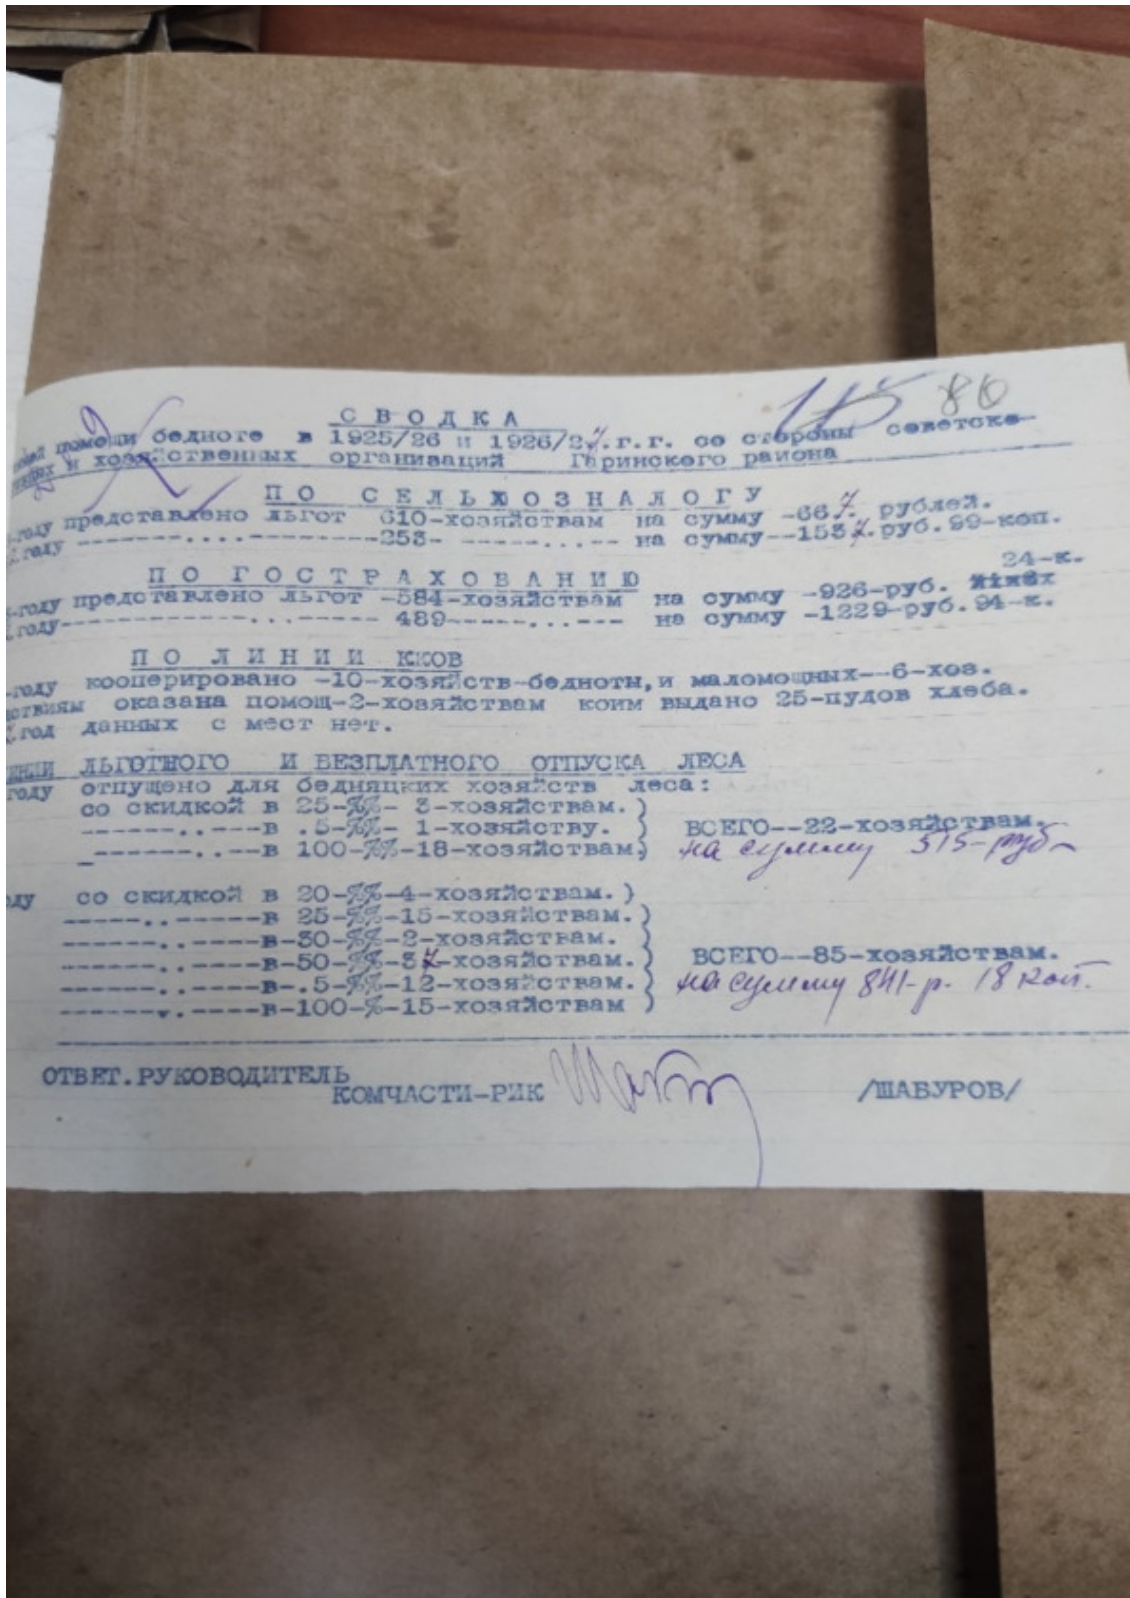 115 80
СВОДКА
помощи бедноте в 1925/26 и 1926/27.г.г. со стороны советско-
и хозяйственных организаций Гаринского района
ПО СЕЛЬХОЗНАЛОГУ
-году представлено льгот 610-хозяйствам на сумму -667. рублей.
году -------....----------253- -----...-- на сумму--1537.руб.99-коп.
24-к.
ПО ГОСТРАХОВАНИЮ
-году представлено льгот -584-хозяйствам на сумму -926-руб.
году------------...------- 489------...--- на сумму -1229-руб.94-к.
ПО ЛИНИИ ККОВ
-году кооперировано -10-хозяйств-бедноты,и маломощных--6-хоз.
ствиям оказана помощ-2-хозяйствам коим выдано 25-пудов хлеба.
год данных с мест нет.
ЛЬГОТНОГО И БЕЗПЛАТНОГО ОТПУСКА ЛЕСА
году отпущено для бедняцких хозяйств леса:
со скидкой в 25-%%- 3-хозяйствам.)
------..---в .5-%%- 1-хозяйству. ) ВСЕГО--22-хозяйствам.
-------..---в 100-%%-18-хозяйствам) на сумму 515-руб
ду со скидкой в 20-%%-4-хозяйствам.)
-----..-----в 25-%%-15-хозяйствам.)
------..----в-30-%%-2-хозяйствам. )
------..----в-50-%%-37-хозяйствам.) ВСЕГО--85-хозяйствам.
------..----в-.5-%%-12-хозяйствам.) на сумму 841-р. 18 коп.
------..----в-100-%-15-хозяйствам )
ОТВЕТ.РУКОВОДИТЕЛЬ
КОМЧАСТИ-РИК /ШАБУРОВ/